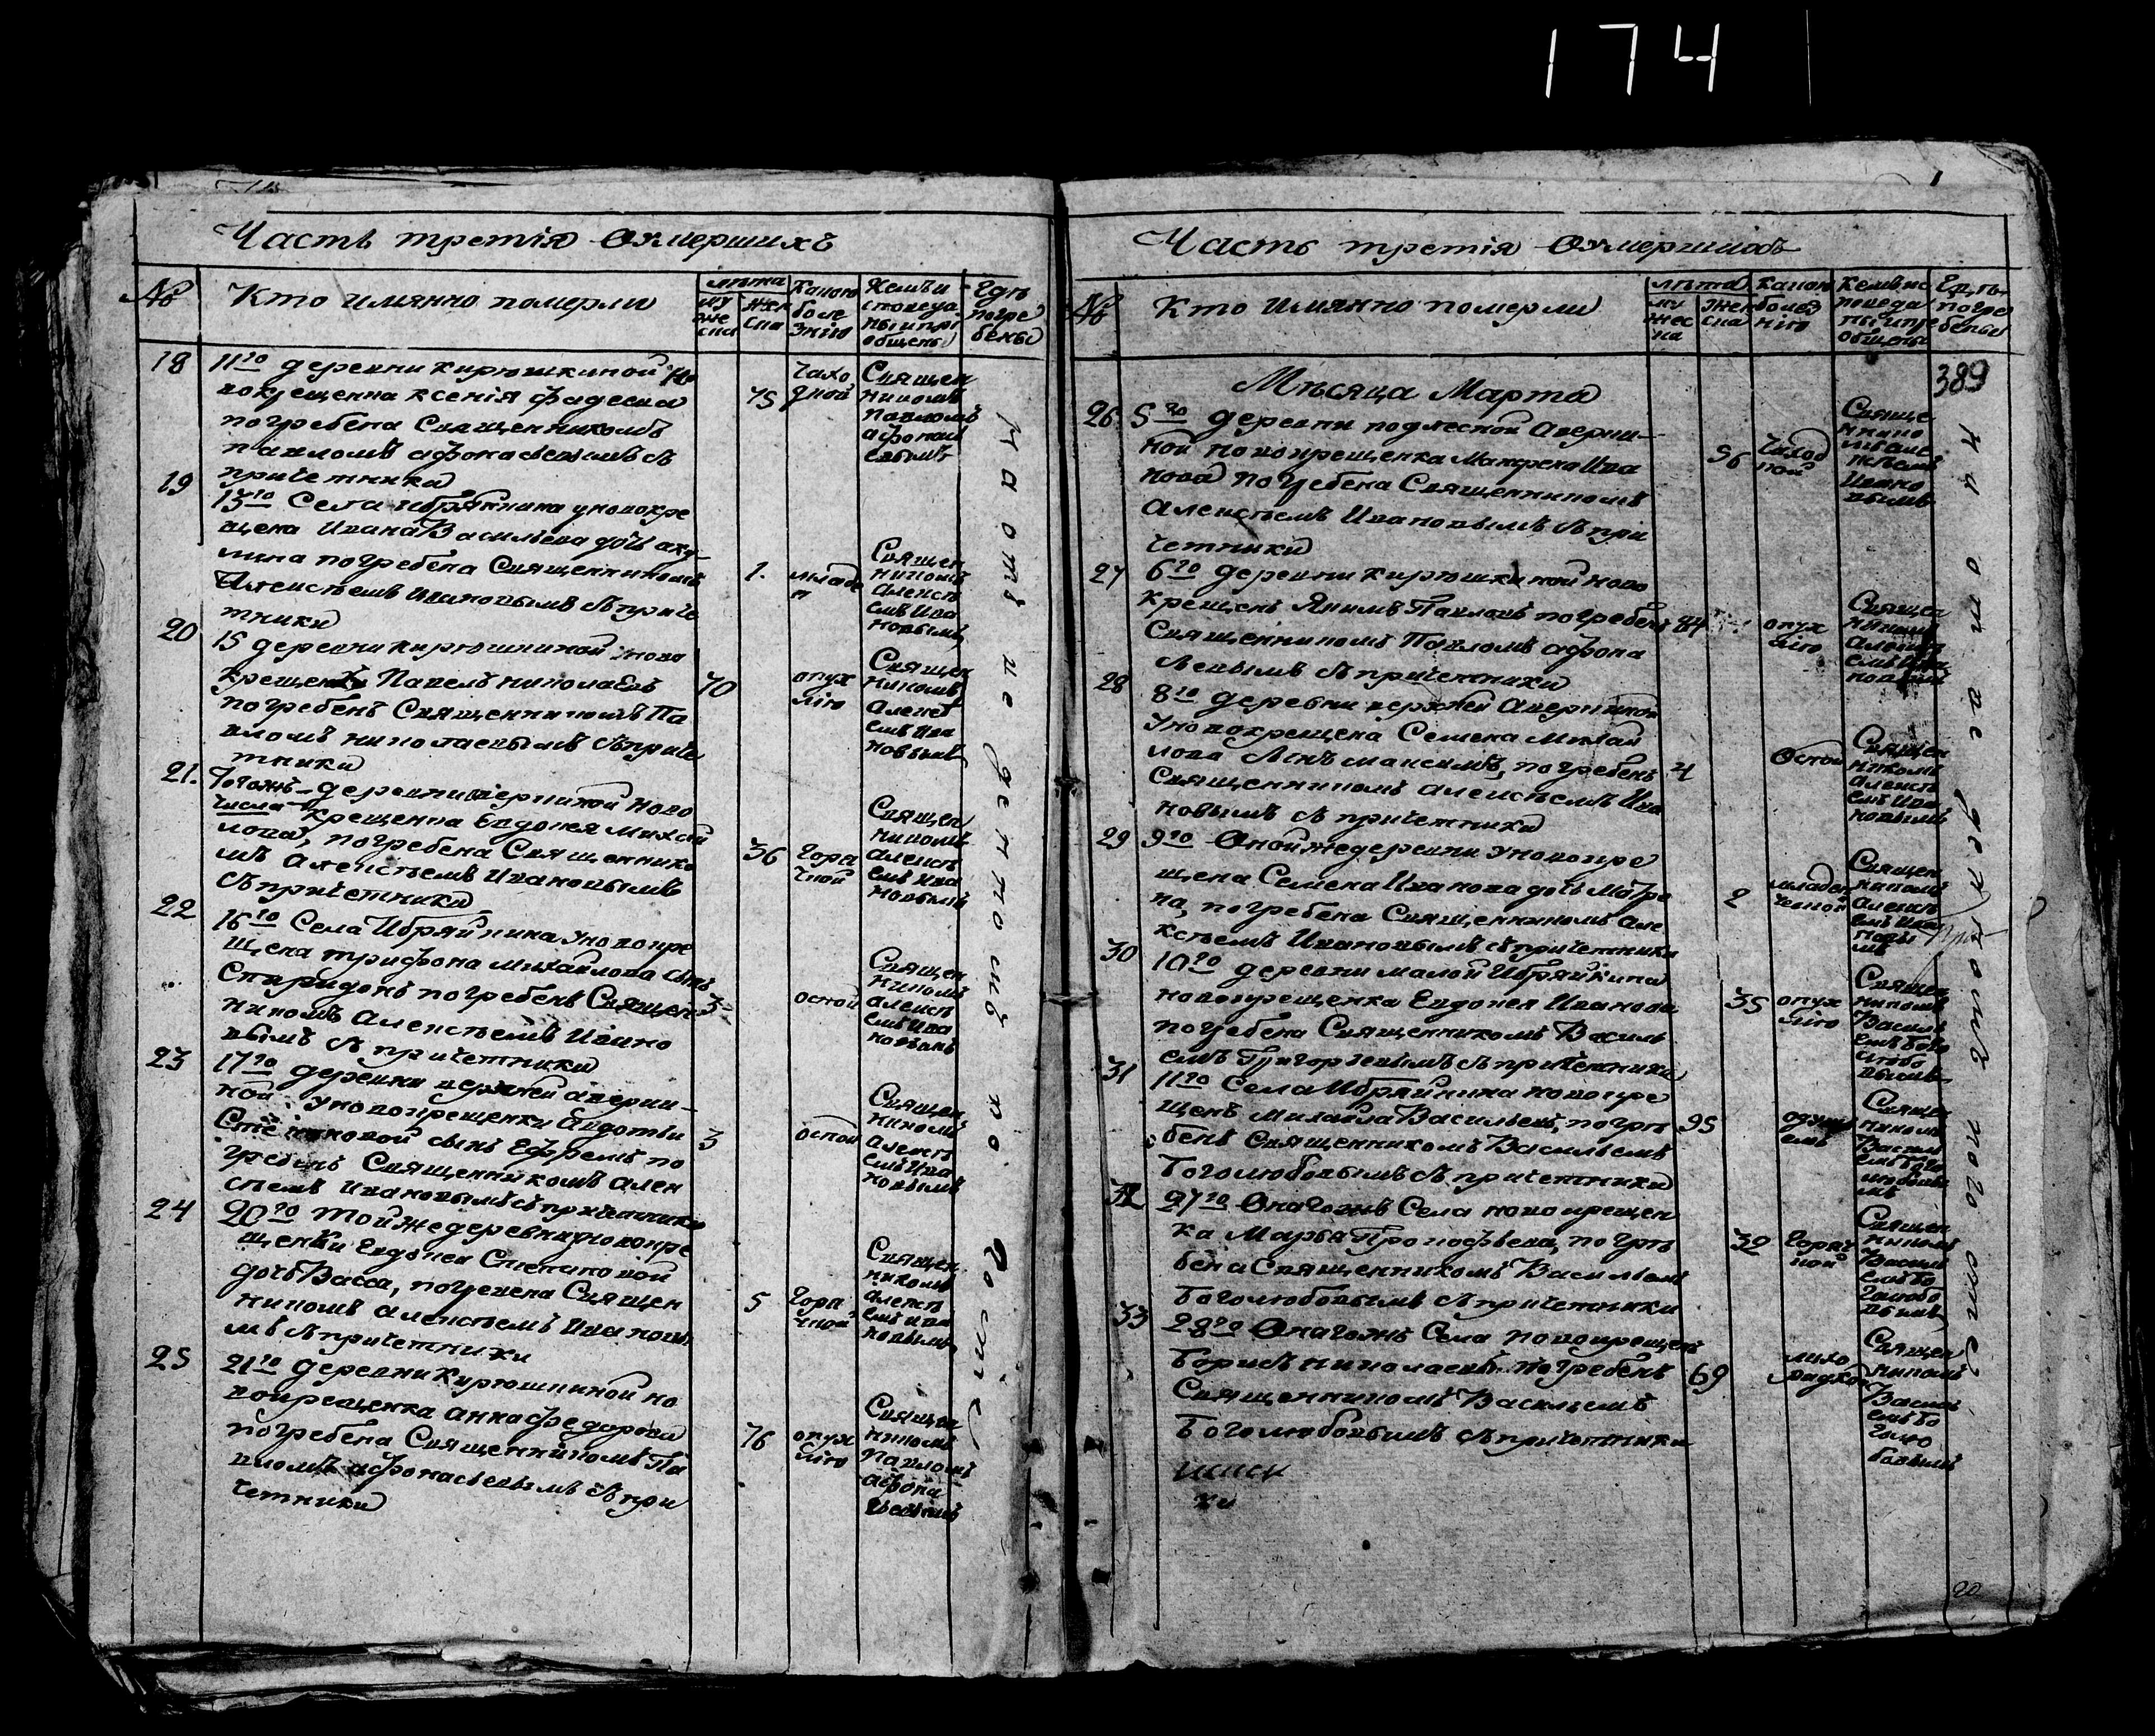 174
Часть третія О умершихъ
№
Кто имянно померли
лѣта
му
же
ска
жен
ска
Какою
боле
знію
Кемъ и
споведа
ны и прі
общены
Гдѣ
погре
бены
18
11го деревни Кирюшкиной но
вокрещенка Ксенія Фадеева
погребена Священникомъ
Павломъ Афонасьевымъ съ
причетники
75
чахо
ткой
Священ
никомъ
Павломъ
Афонась
евымъ
19
13го Села Ибряйкина у новокре
щена Ивана Васильева дочь Аку
лина погребена Священникомъ
Алексѣемъ Ивановымъ съ приче
тники
1.
Священ
никомъ
Алексѣ
емъ Ива
новымъ
20
15 деревни Кирюшкиной ново
крещенъ Павелъ Николаевъ
погребенъ Священникомъ Па
вломъ Николаевымъ съ приче
тники
70
опух
лію
Священ
никомъ
Алексѣ
емъ Ива
новымъ
21.
Тогожъ деревни Аверкиной ново
числа крещенка Евдокея Михай
лова, погребена Священнико
мъ Алексѣемъ Ивановымъ
съ причетники
36
горя
чкой
Священ
никомъ
Алексѣ
емъ Ива
новымъ
22
16го Села Ибряйкина у новокре
щена Трифона Михайлова сынъ
Спиридонъ погребенъ Священ
никомъ Алексѣемъ Ивано
вымъ съ причетники
3
оспой
Священ
никомъ
Алексѣ
емъ Ива
новымъ
23
17го деревни верхней Аверки
ной у новокрещенки Авдотьи
Степановой сынъ Ефремъ по
гребенъ Священникомъ Алек
сѣемъ Ивановымъ съ причетники
3
оспой
Священ
никомъ
Алексѣ
емъ Ива
новымъ
24
20го тойже деревни у новокре
щенки Евдокеи Степановой
дочь Васса, погребена Священ
никомъ Алексѣемъ Ивановы
мъ съ причетники
5
горя
чкой
Священ
никомъ
Алексѣ
емъ Ива
новымъ
25
21го деревни Кирюшкиной но
вокрещенка Анна Федорова
погребена Священникомъ Па
вломъ Афонасьевымъ съ при
четники
76
опух
лію
Священ
никомъ
Павломъ
Афона
сьевымъ
на отведенномъ по госте
Часть третія О умершихъ
№
Кто имянно померли
лѣта
му
жес
ка
жен
ска
Какою
болез
нію
Кемъ ис
поведа
ны и при
общены
Гдѣ
погре
бены
389
Мѣсяца Марта
26
5го деревни подлесной Аверки
ной новокрещенка Ива
нова погребена Священникомъ
Алексѣемъ Ивановымъ съ при
четники
56
чахот
кой
Свяще
нико
мъ Але
ксѣемъ
Ивано
вымъ
27
6го деревни Кирюшкиной ново
крещенъ Якимъ Павловъ погребенъ
Священникомъ Павломъ Афона
сьевымъ съ причетники
84
опух
лію
Священ
никомъ
Алексѣ
емъ Ива
новымъ
28
8го деревни верхней Аверкиной
у новокрещена Семена Михай
лова сынъ Максимъ, погребенъ
Священникомъ Алексѣемъ Ива
новымъ съ причетники
4
Оспой
Священ
никомъ
Алексѣ
емъ Ива
новымъ
29
9го Оной же деревни у новокре
щена Семена Иванова дочь Матре
на, погребена Священникомъ Але
ксѣемъ Ивановымъ съ причетники
2
младен
ческой
Священ
никомъ
Алексѣ
емъ Ива
новы
мъ
30
10го деревни малой Ибряйкина
новокрещенка Евдокея Иванова
погребена Священникомъ Василь
емъ Григорьевымъ съ причетники
35
опух
лію
Священ
никомъ
Василь
емъ Бого
любо
вымъ
31
11го Села Ибряйкина новокре
щенъ Михайла Васильевъ, погре
бенъ Священникомъ Васильемъ
Боголюбовымъ съ причетники
95
Священ
никомъ
Василь
емъ Бого
любовы
мъ
32
27го Онагожъ Села новокрещен
ка Марья Прокофьева, погре
бена Священникомъ Васильемъ
Боголюбовымъ съ причетники
30
горяч
кой
Священ
никомъ
Василь
емъ Бо
голюбо
вымъ
33
28го Онагожъ Села новокрещенъ
Борисъ Николаевъ погребенъ
Священникомъ Васильемъ
Боголюбовымъ съ причетники
69
лихо
радкой
Священ
никомъ
Василь
емъ Бо
голю
бовымъ
на отведенномъ погосте